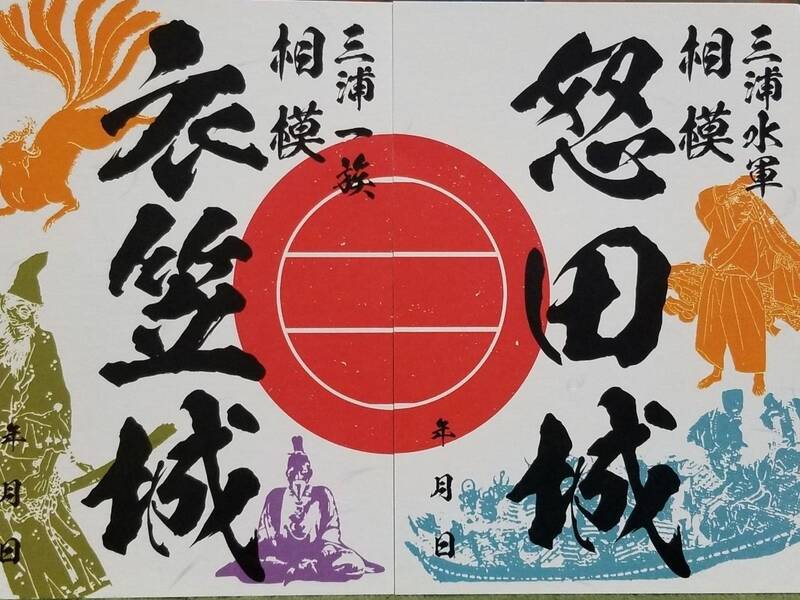 三浦水軍
相模
怒田城
年 月 日
三浦一族
相模
衣笠城
年 月 日